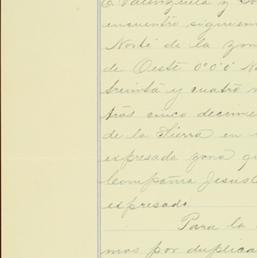 C. Valenzuela y
encuentro siguiem
Norte de la zon
de Oeste 0°0'0 N
treinta y cuatro m
tros cinco decime
de la Sierra en
expresada zona q
Compañía Jesus
expresado.
Para la
mas por duplica